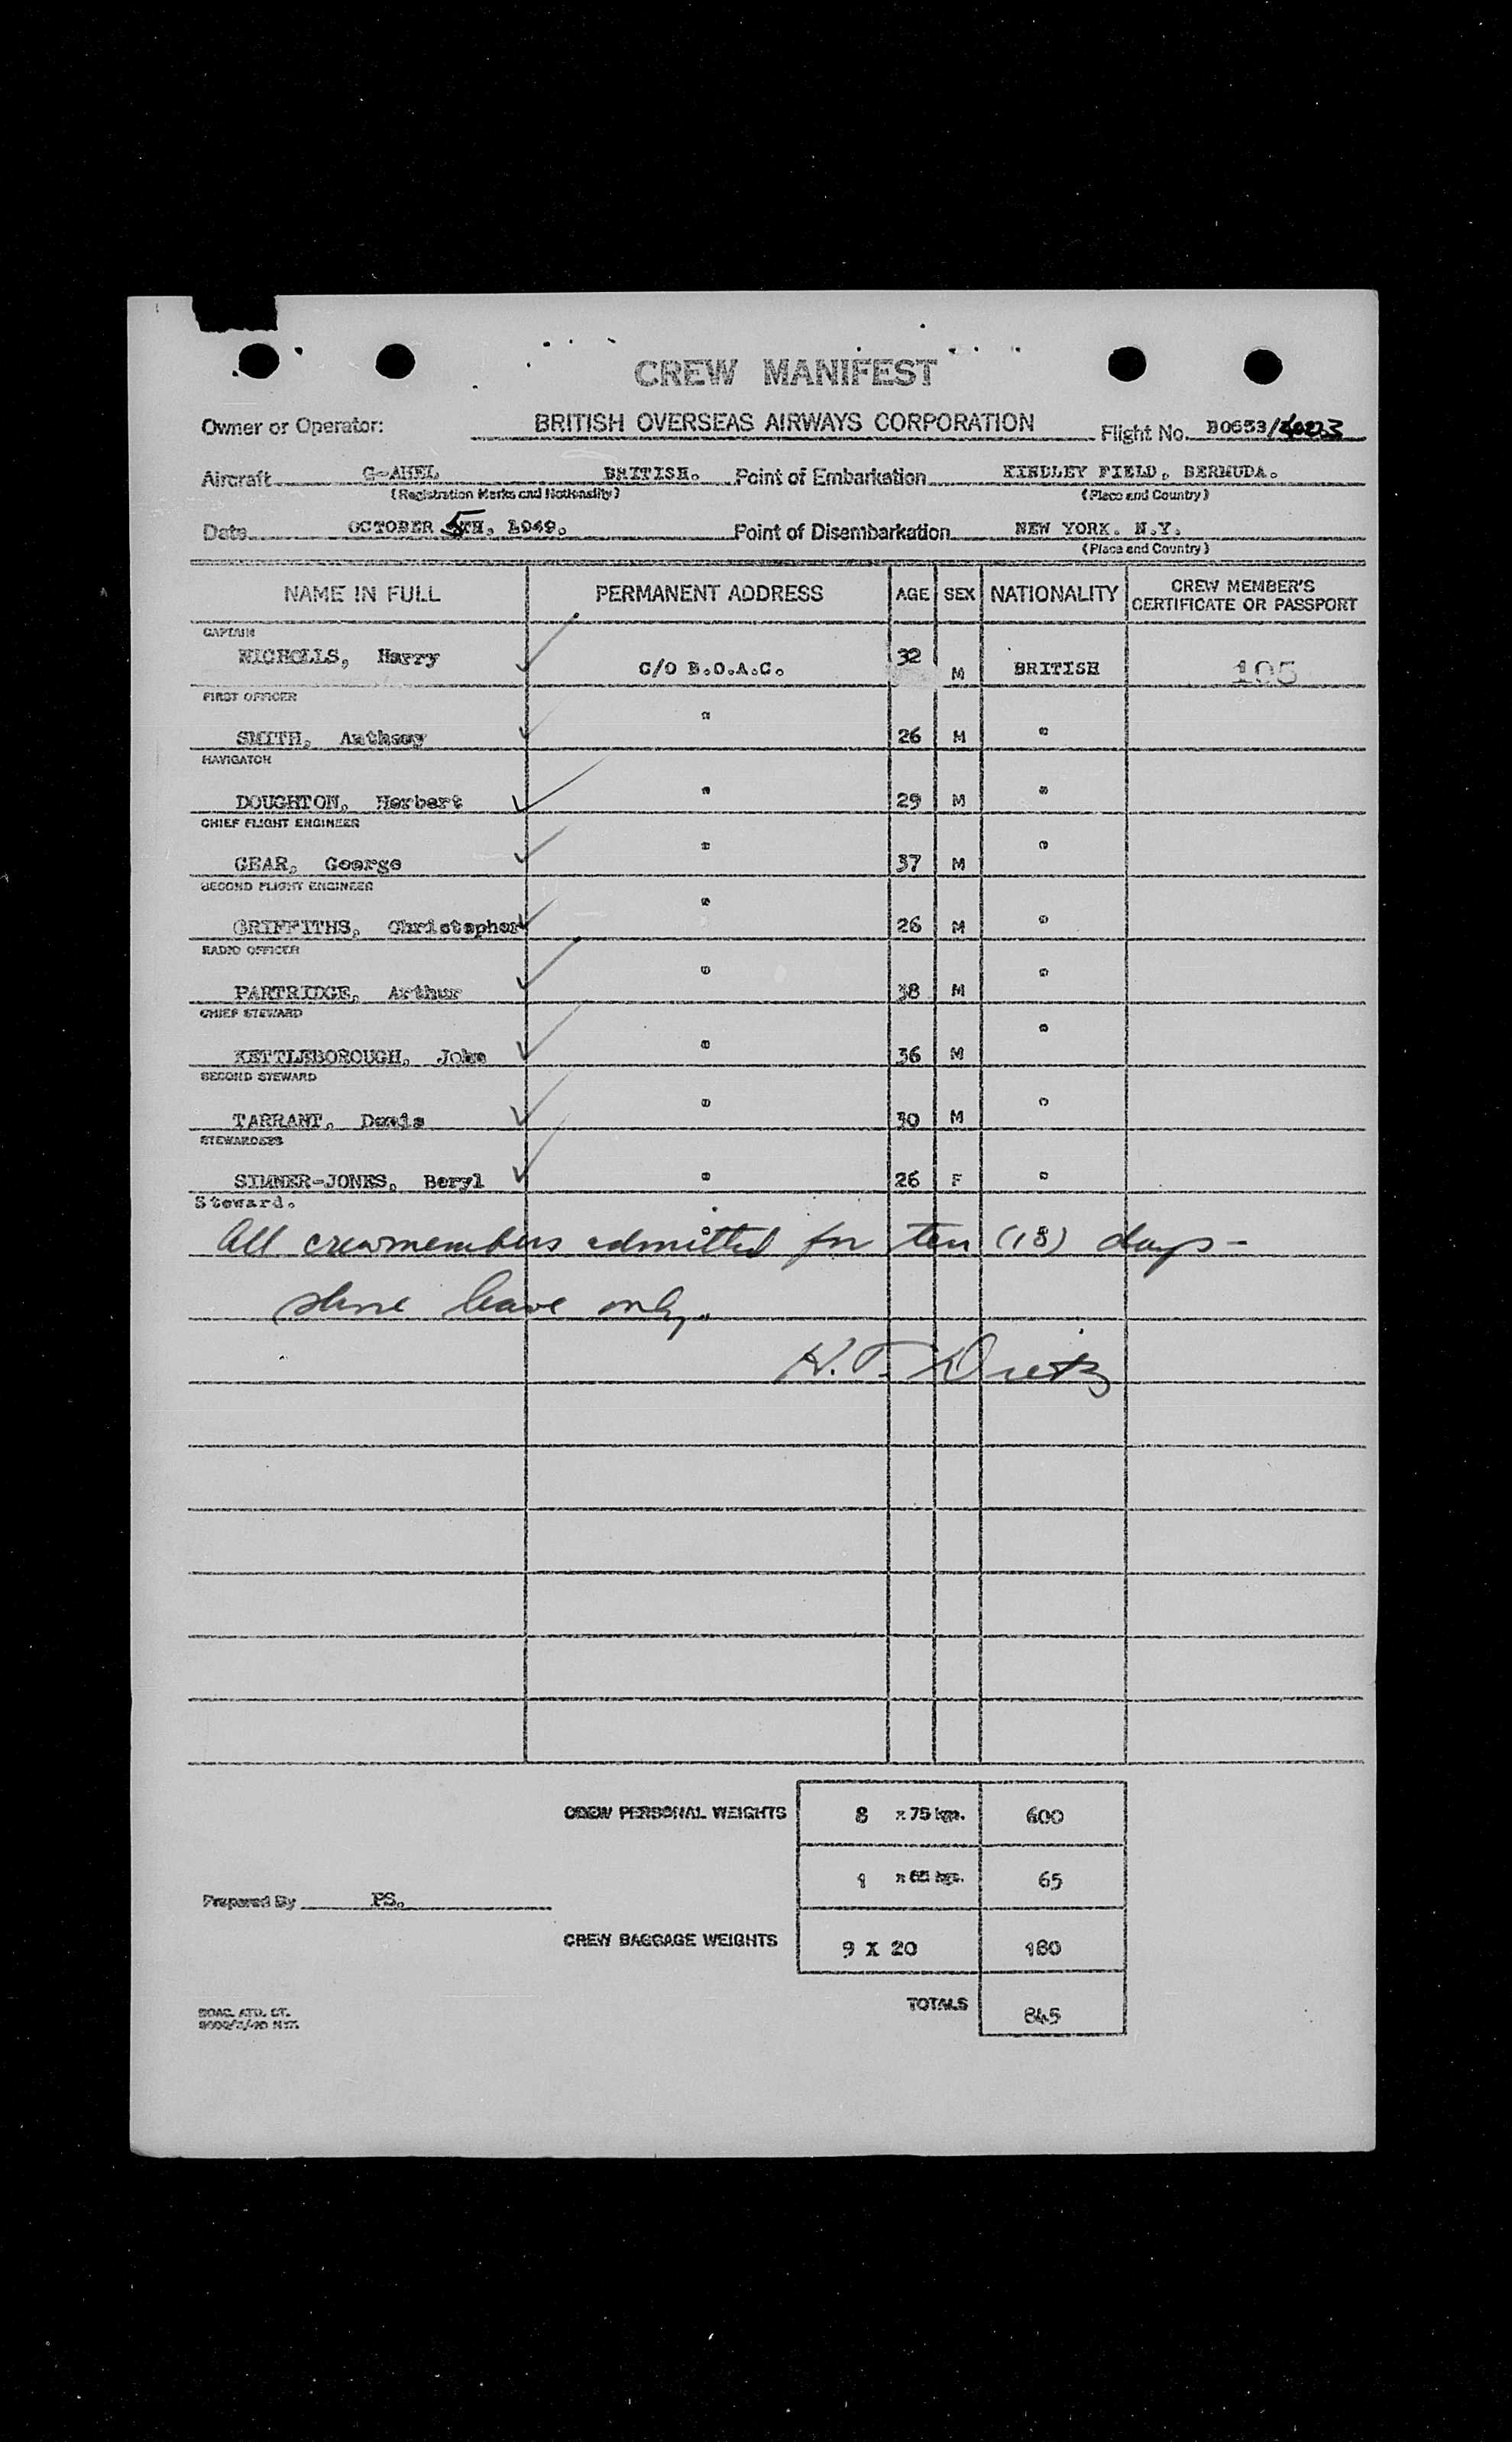 CREW MANIFEST
Owner or Operator: BRITISH OVERSEAS AIRWAYS CORPORATION Flight No. B0653/
Aircraft G-AHEL BRITISH. Point of Embarkation KINDLEY FIELD, BERMUDA.
(Registration Marks and Nationality) (Place and Country)
Date OCTOBER 5TH, 1949. Point of Disembarkation NEW YORK. N.Y.
(Place and Country)
NAME IN FULL PERMANENT ADDRESS AGE SEX NATIONALITY CREW MEMBER'S CERTIFICATE OR PASSPORT
CAPTAIN
NICHOLLS, Harry C/O B.O.A.C. 32 M BRITISH 105
FIRST OFFICER
SMITH, Anthony " 26 M "
NAVIGATOR
DOUGHTON, Herbert " 29 M "
CHIEF FLIGHT ENGINEER
GEAR, George " 37 M "
SECOND FLIGHT ENGINEER
GRIFFITHS, Christopher " 26 M "
RADIO OFFICER
PARTRIDGE, Arthur " 38 M "
CHIEF STEWARD
KETTLEBOROUGH, John " 36 M "
SECOND STEWARD
TARRANT, Denis " 30 M "
STEWARDESS
SIMNER-JONES, Beryl " 26 F "
Steward. "
All crewmembers admitted for ten (18) days -
shore leave only.
H.T. Dietz
CREW PERSONAL WEIGHTS 8 x 75 kgs. 600
1 x 65 kgs. 65
Prepared By PS.
CREW BAGGAGE WEIGHTS 9 X 20 180
TOTALS 845
BOAC. ATD. CT.